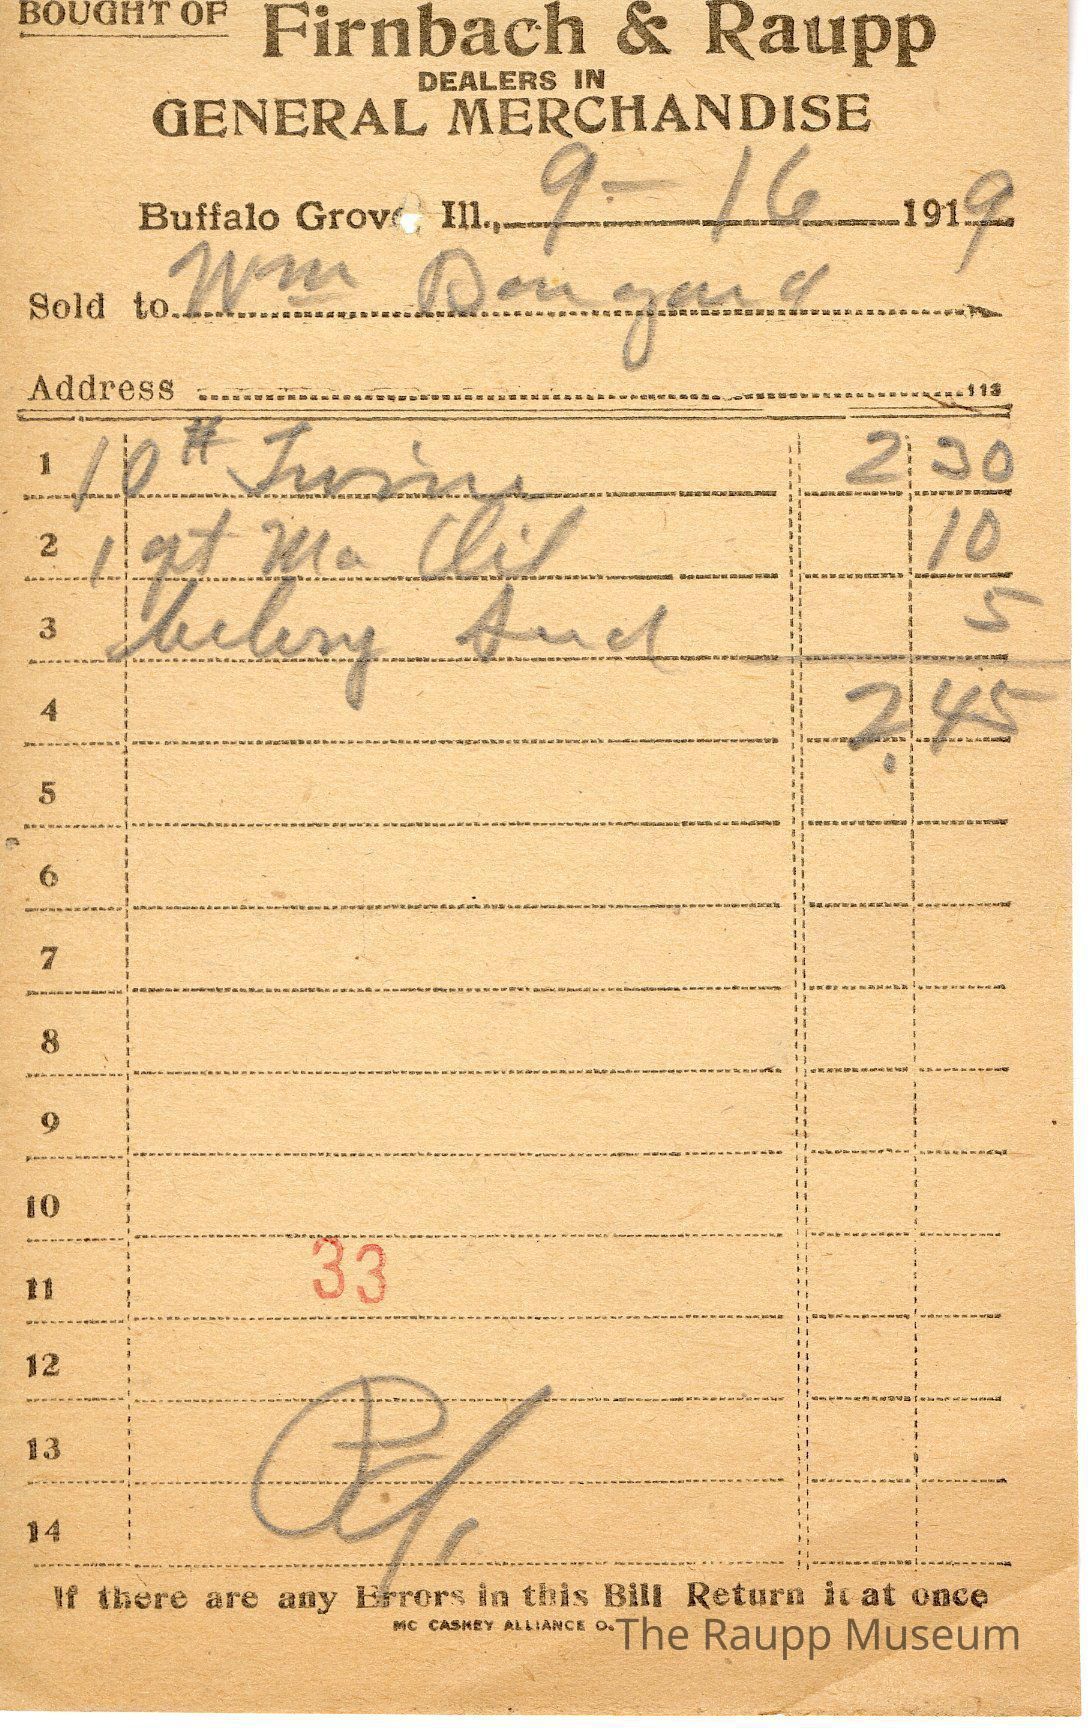 BOUGHT OF Firnbach & Raupp
DEALERS IN
GENERAL MERCHANDISE
Buffalo Grove, Ill., 9-16 1919
Sold to Wm Bongard
Address 113
1 10# Twine 2 30
2 1 qt Ma Oil 10
3 Celery Seed 5
4 2.45
5
6
7
8
9
10
11 33
12
13
14
If there are any Errors in this Bill Return it at once
MC CASKEY ALLIANCE O.
The Raupp Museum